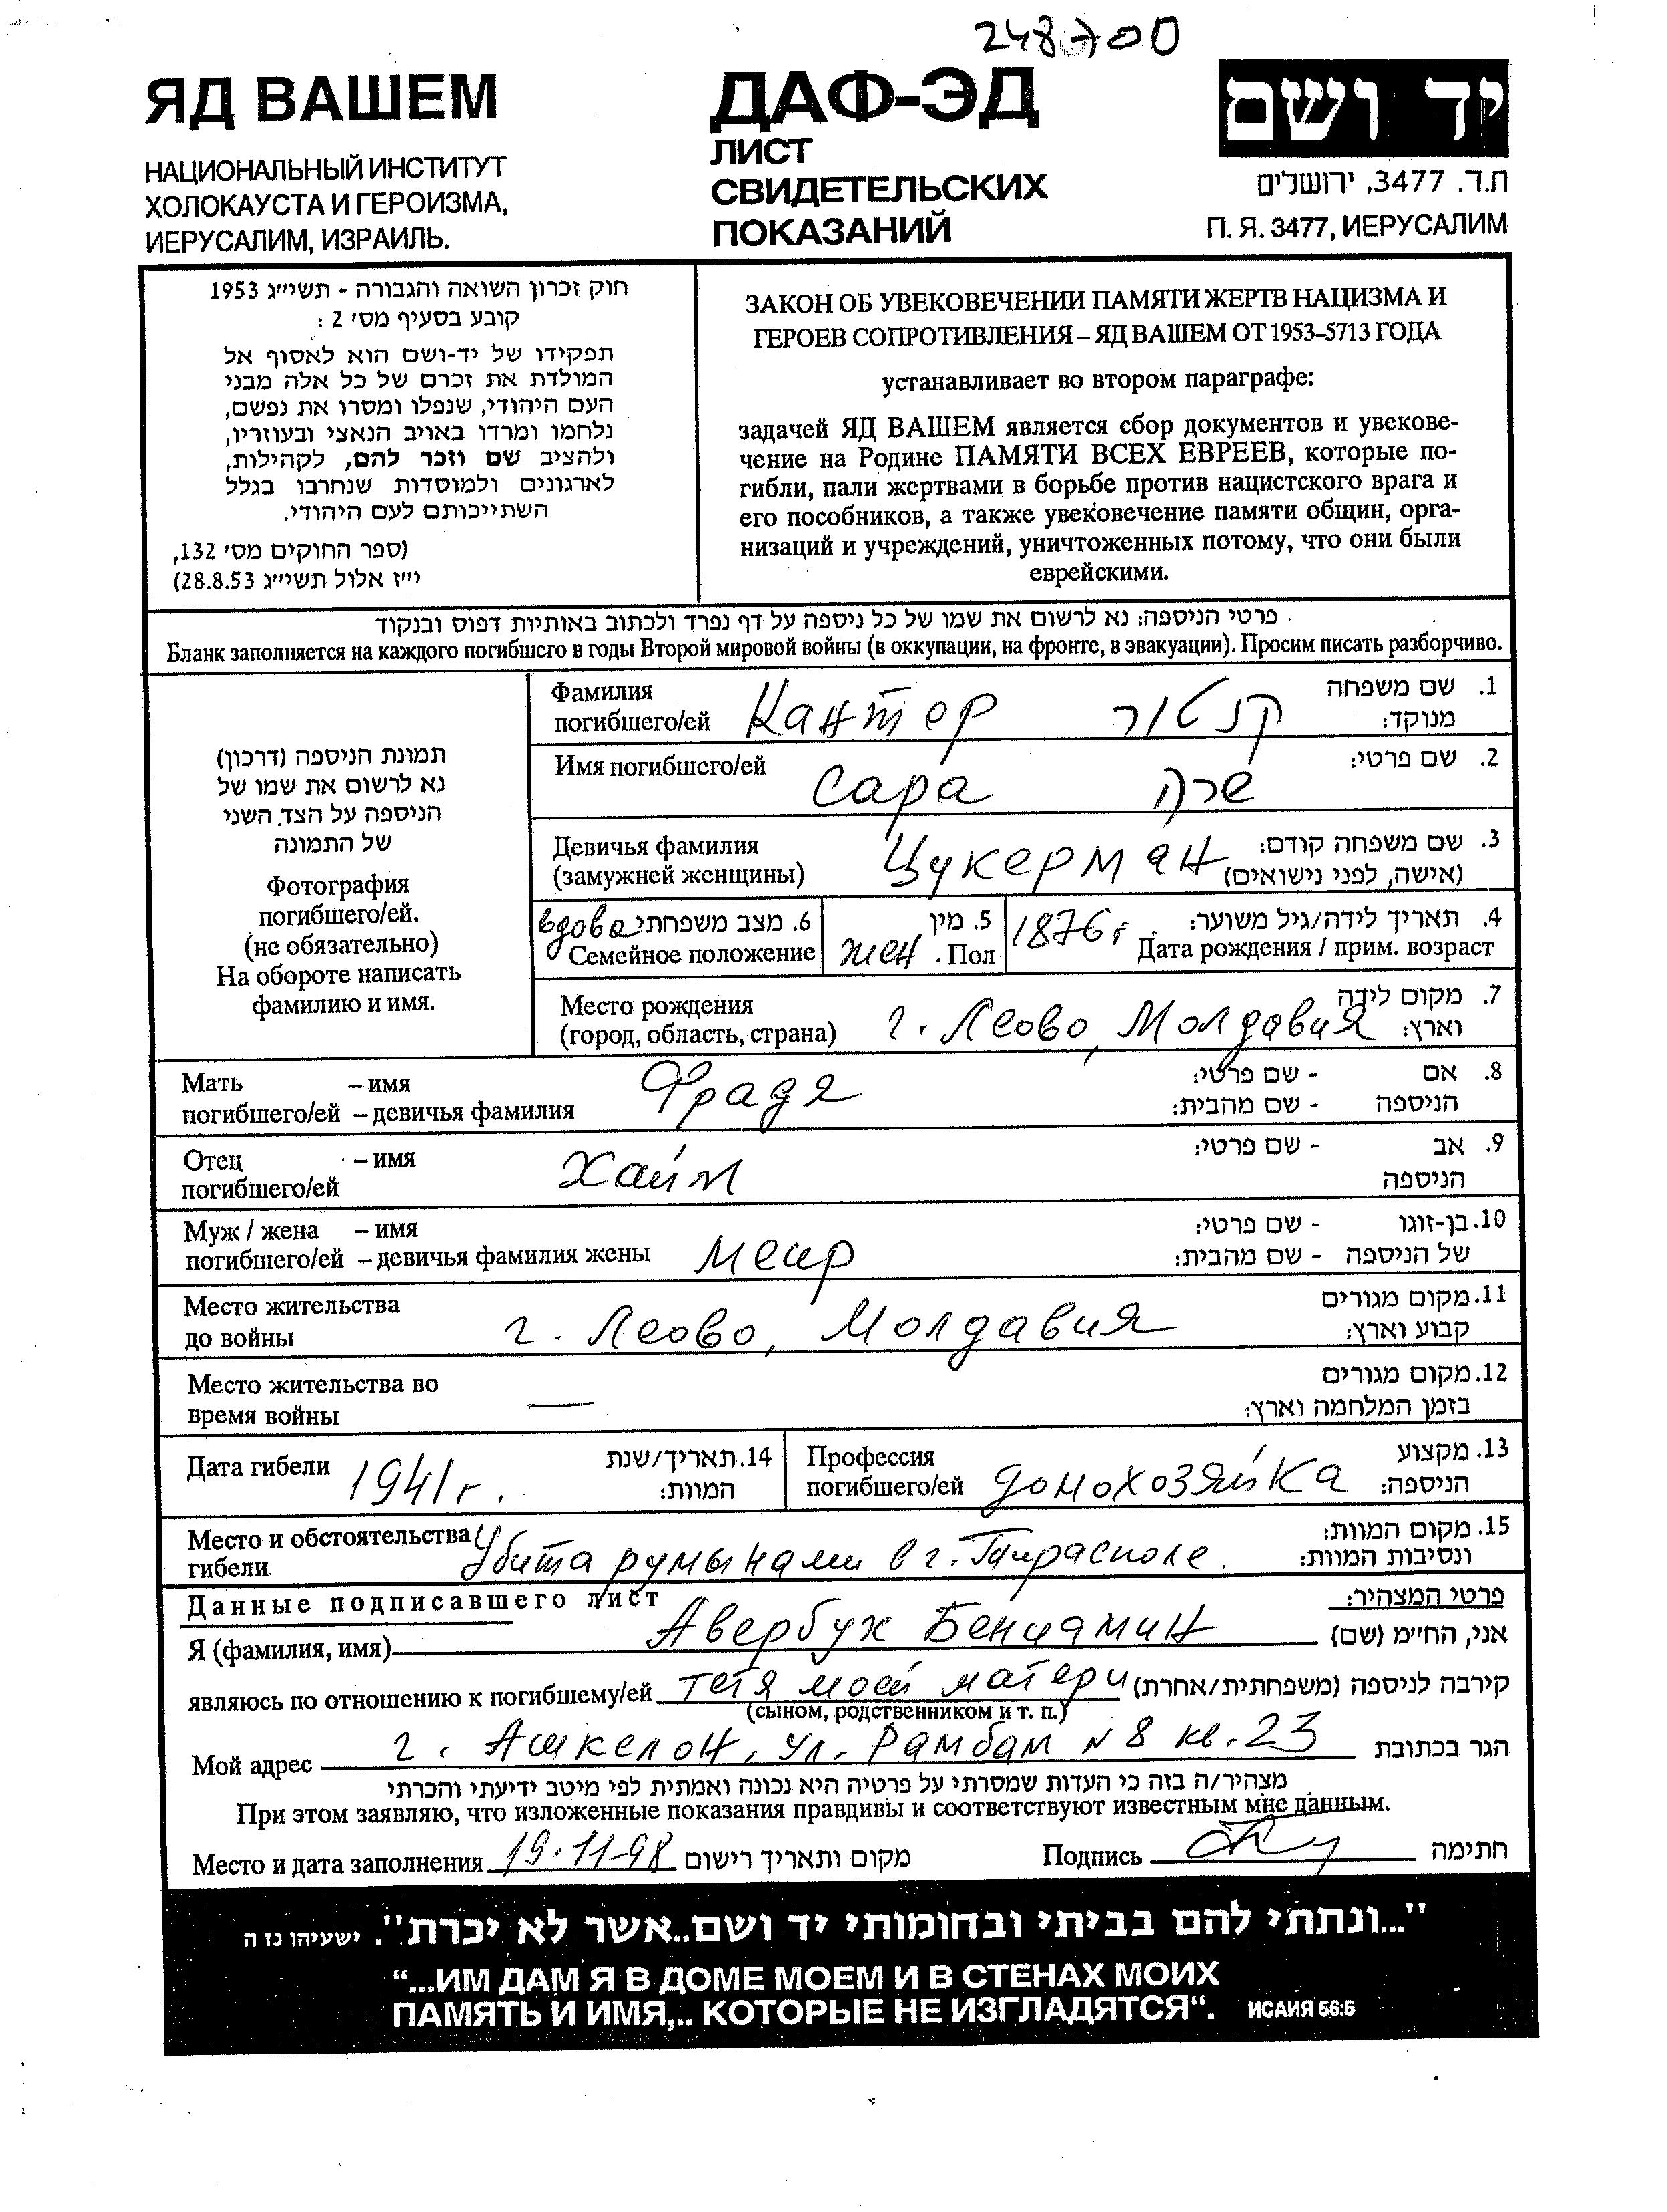 248700
ЯД ВАШЕМ
НАЦИОНАЛЬНЫЙ ИНСТИТУТ
ХОЛОКАУСТА И ГЕРОИЗМА,
ИЕРУСАЛИМ, ИЗРАИЛЬ.
ДАФ-ЭД
ЛИСТ
СВИДЕТЕЛЬСКИХ
ПОКАЗАНИЙ
יד ושם
ת.ד. 3477, ירושלים
П. Я. 3477, ИЕРУСАЛИМ
חוק זכרון השואה והגבורה - תשי״ג 1953
קובע בסעיף מס׳ 2 :
תפקידו של יד-ושם הוא לאסוף אל
המולדת את זכרם של כל אלה מבני
העם היהודי, שנפלו ומסרו את נפשם,
נלחמו ומרדו באויב הנאצי ובעוזריו,
ולהציב שם וזכר להם, לקהילות,
לארגונים ולמוסדות שנחרבו בגלל
השתייכותם לעם היהודי.
(ספר החוקים מס׳ 132,
י״ז אלול תשי״ג 28.8.53)
ЗАКОН ОБ УВЕКОВЕЧЕНИИ ПАМЯТИ ЖЕРТВ НАЦИЗМА И
ГЕРОЕВ СОПРОТИВЛЕНИЯ – ЯД ВАШЕМ ОТ 1953–5713 ГОДА
устанавливает во втором параграфе:
задачей ЯД ВАШЕМ является сбор документов и увекове-
чение на Родине ПАМЯТИ ВСЕХ ЕВРЕЕВ, которые по-
гибли, пали жертвами в борьбе против нацистского врага и
его пособников, а также увековечение памяти общин, орга-
низаций и учреждений, уничтоженных потому, что они были
еврейскими.
פרטי הניספה: נא לרשום את שמו של כל ניספה על דף נפרד ולכתוב באותיות דפוס ובנקוד
Бланк заполняется на каждого погибшего в годы Второй мировой войны (в оккупации, на фронте, в эвакуации). Просим писать разборчиво.
תמונת הניספה (דרכון)
נא לרשום את שמו של
הניספה על הצד השני
של התמונה
Фотография
погибшего/ей.
(не обязательно)
На обороте написать
фамилию и имя.
Фамилия 1. שם משפחה
погибшего/ей Кантер קנטור מנוקד:
Имя погибшего/ей 2. שם פרטי:
Сара שרה
Девичья фамилия Цукерман 3. שם משפחה קודם:
(замужней женщины) (אישה, לפני נישואים)
вдова 6. מצב משפחתי 5. מין 1876г. 4. תאריך לידה/גיל משוער:
Семейное положение жен. Пол Дата рождения / прим. возраст
Место рождения 7. מקום לידה
(город, область, страна) г. Леово, Молдавия וארץ:
Мать – имя Фрадя 8. אם - שם פרטי:
погибшего/ей – девичья фамилия הניספה - שם מהבית:
Отец – имя Хаим 9. אב - שם פרטי:
погибшего/ей הניספה
Муж / жена – имя 10. בן-זוגו - שם פרטי:
погибшего/ей – девичья фамилия жены Меир של הניספה - שם מהבית:
Место жительства 11. מקום מגורים
до войны г. Леово, Молдавия קבוע וארץ:
Место жительства во 12. מקום מגורים
время войны — בזמן המלחמה וארץ:
Дата гибели 1941г. 14. תאריך/שנת
המוות:
Профессия 13. מקצוע
погибшего/ей домохозяйка הניספה:
Место и обстоятельства 15. מקום המוות:
гибели Убита румынами в г. Тирасполе. ונסיבות המוות:
Данные подписавшего лист פרטי המצהיר:
Я (фамилия, имя) Авербух Бенциамин אני, החי״מ (שם)
являюсь по отношению к погибшему/ей тетя моей матери קירבה לניספה (משפחתית/אחרת)
(сыном, родственником и т. п.)
Мой адрес г. Ашкелон, ул. Рамбам N 8 кв. 23 הגר בכתובת
מצהיר/ה בזה כי העדות שמסרתי על פרטיה היא נכונה ואמתית לפי מיטב ידיעתי והכרתי
При этом заявляю, что изложенные показания правдивы и соответствуют известным мне данным.
Место и дата заполнения 19.11-98 מקום ותאריך רישום Подпись חתימה
"...ונתתי להם בביתי ובחומותי יד ושם..אשר לא יכרת". ישעיהו נו ה
“...ИМ ДАМ Я В ДОМЕ МОЕМ И В СТЕНАХ МОИХ
ПАМЯТЬ И ИМЯ,.. КОТОРЫЕ НЕ ИЗГЛАДЯТСЯ“. ИСАИЯ 56:5